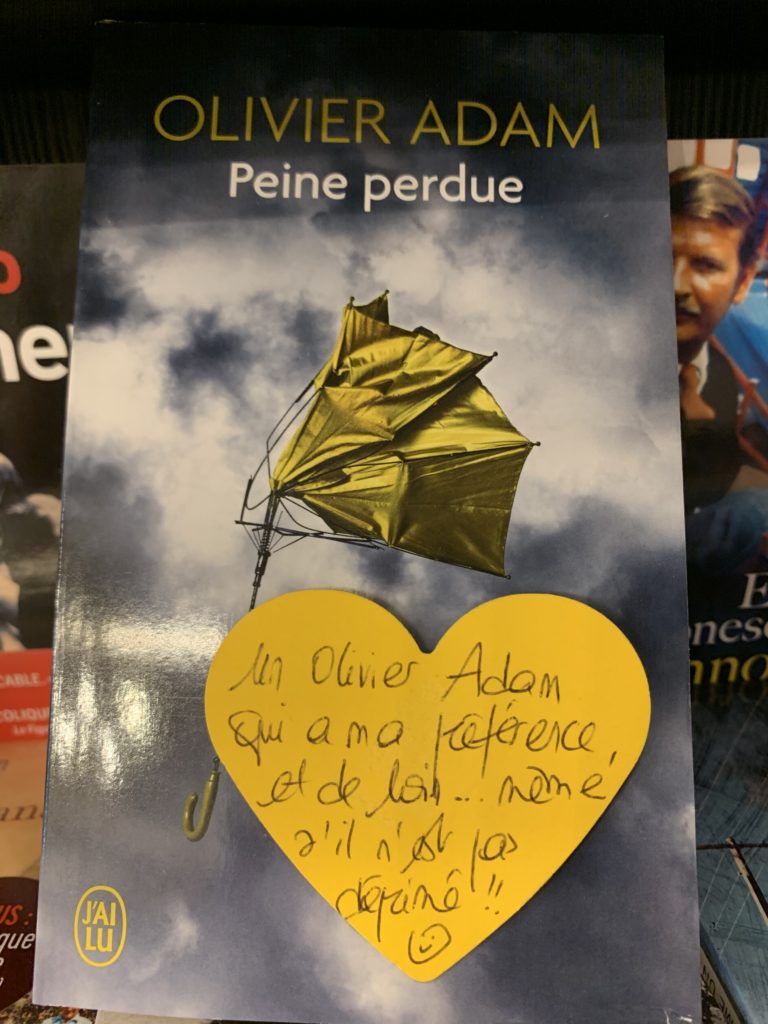 OLIVIER ADAM
Peine perdue
Un Olivier Adam
qui a ma préférence,
et de loin... même
s'il n'est pas
déprimé !!
J'AI
LU
CABLE.
COLIQUE
Le Figa
US :
que
E
nesc
nno